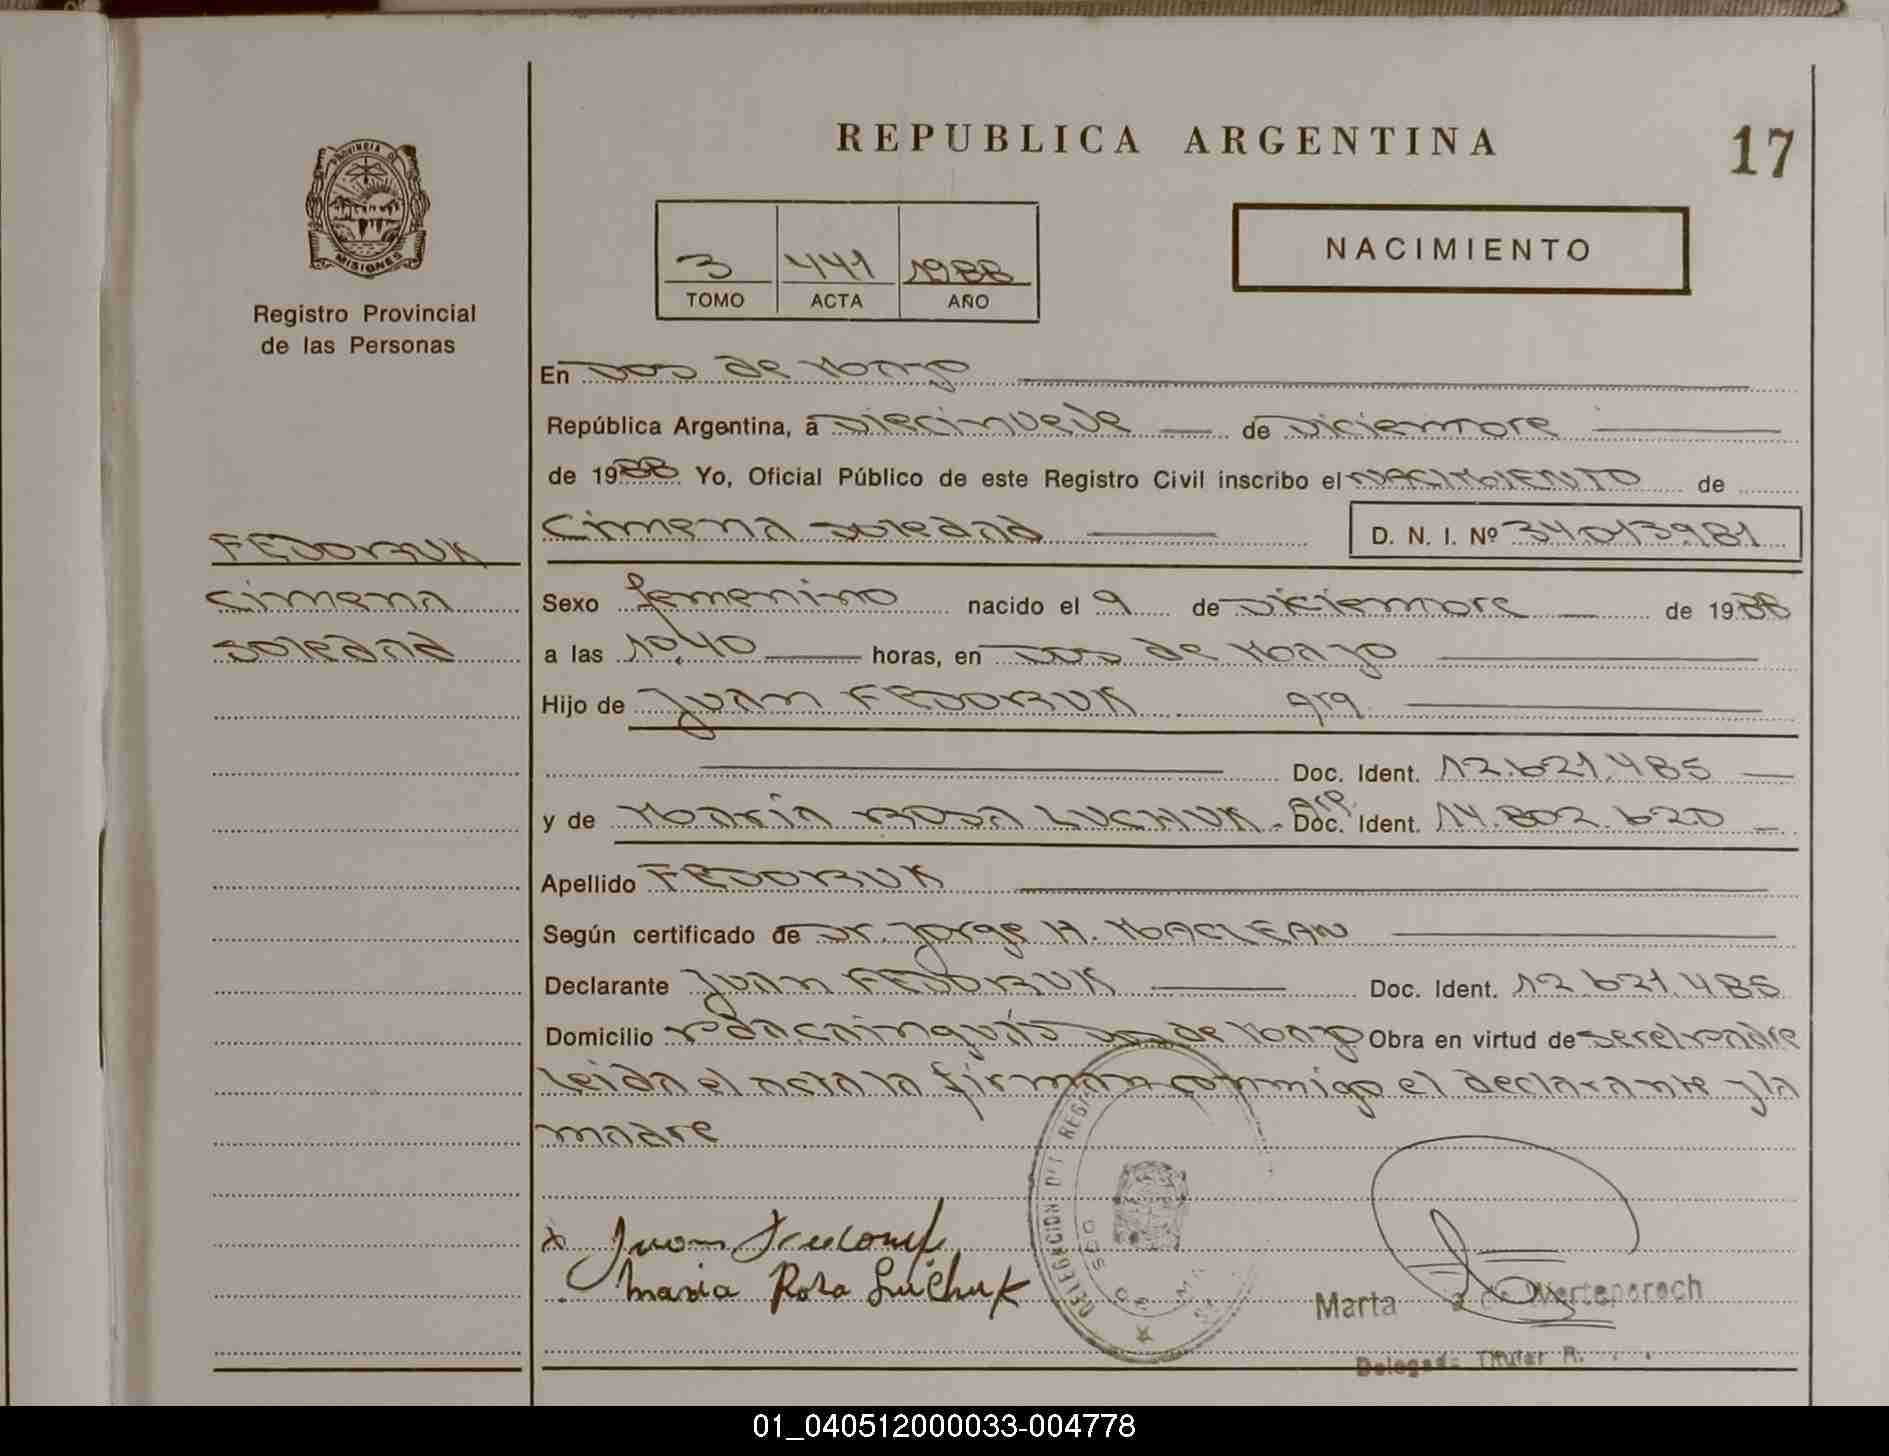 REPUBLICA ARGENTINA
17
PROVINCIA DE
MISIONES
Registro Provincial
de las Personas
3 441 1988
TOMO ACTA AÑO
NACIMIENTO
En Dos de Mayo
República Argentina, a Diecinueve de Diciembre
de 1988 Yo, Oficial Público de este Registro Civil inscribo el NACIMIENTO de
Cimena Soledad D. N. I. Nº 34013981
FEDORUK
Cimena
Soledad
Sexo femenino nacido el 9 de Diciembre de 1988
a las 10,40 horas, en Dos de Mayo
Hijo de Juan FEDORUK arg
Doc. Ident. 12.621.485
y de María Rosa LUCHUK - arg. Doc. Ident. 14.802.620
Apellido FEDORUK
Según certificado de Dr. Jorge H. MACLEAN
Declarante Juan FEDORUK Doc. Ident. 12.621.485
Domicilio Dos de Mayo Obra en virtud de ser el padre
Leida el acta la firman conmigo el declarante y la
madre
x Juan
Maria Rosa Luchuk
DELEGACION DEL REGI
Marta de Wertenbroch
Delegada Titular R.
01_040512000033-004778